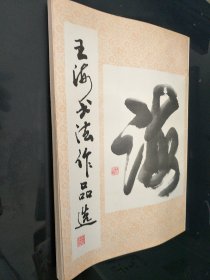 王海书法作品选
海